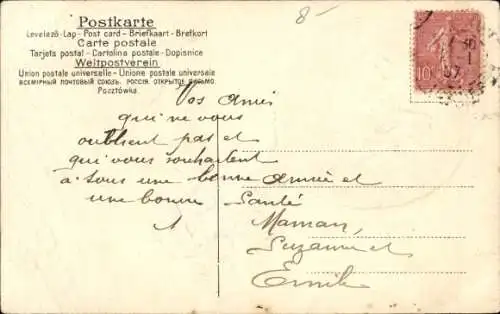 8-
Postkarte
Levelező-Lap - Post card - Briefkaart - Brefkort
Carte postale
Tarjets postal - Cartolina postale - Dopisnice
Weltpostverein
Union postale universelle - Unione postale universale
ВСЕМІРНЫЙ ПОЧТОВЫЙ СОЮЗЪ. РОССІЯ. ОТКРЫТОЕ ПИСЬМО.
Pocztówka
10
30
1
07
Vos amis
qui ne vous
oublient pas et
qui vous souhaitent
à tous une bonne année et
une bonne Santé
Maman,
Suzanne et
Emile